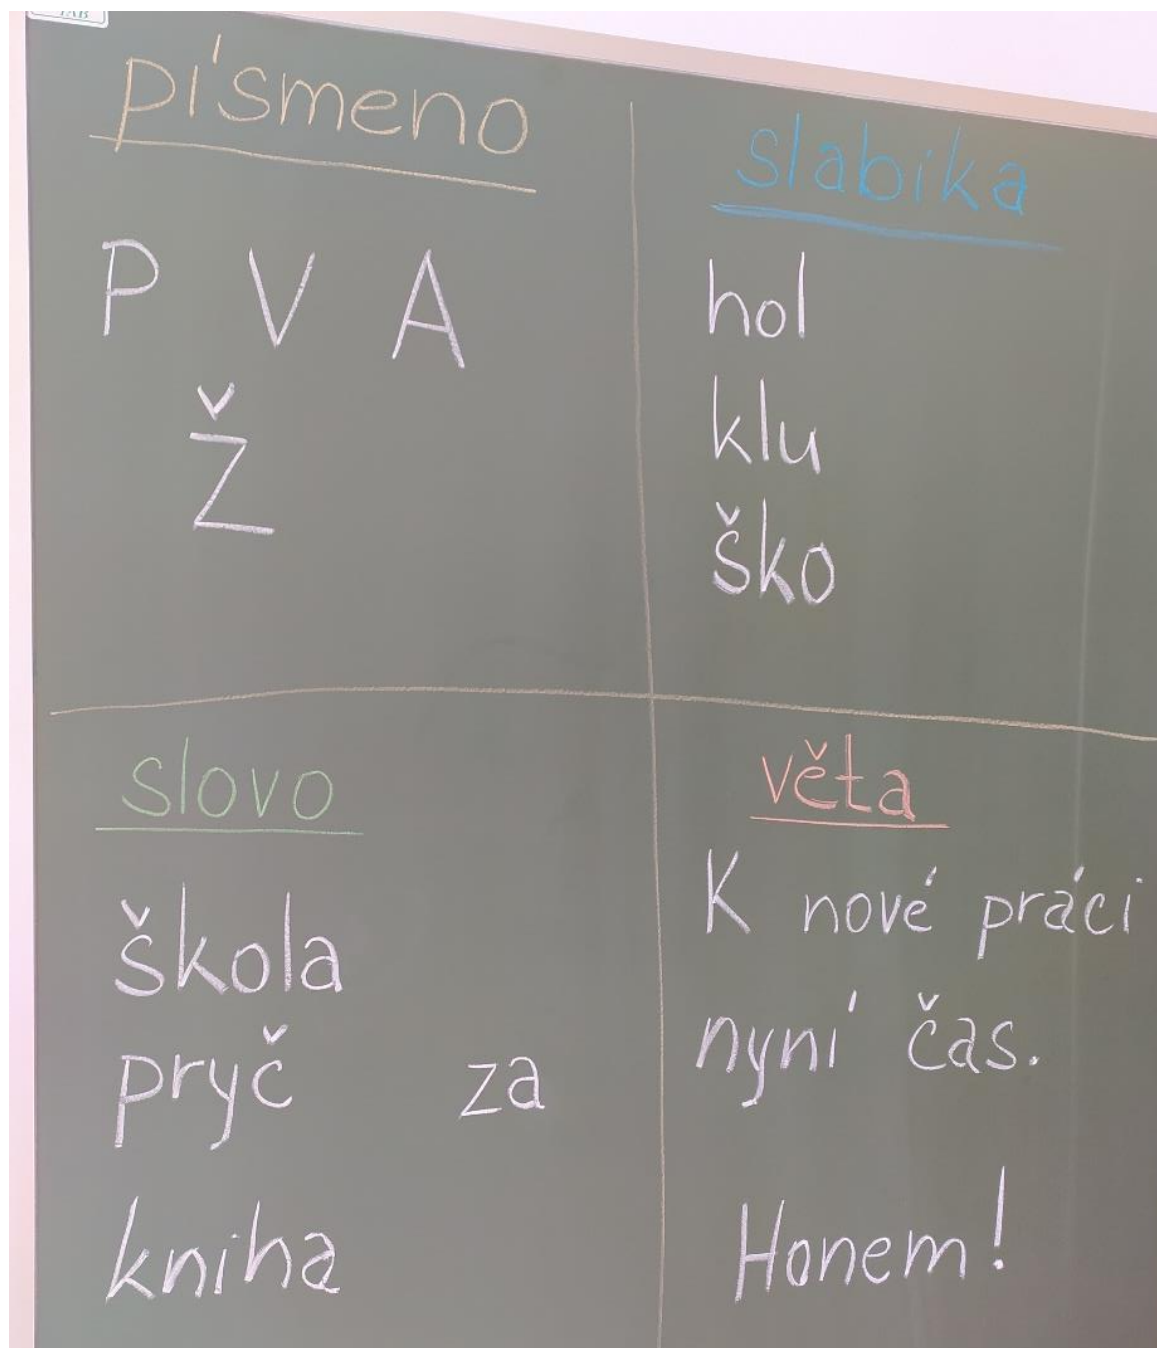 písmeno
P V A
Ž
slabika
hol
klu
ško
slovo
škola
pryč za
kniha
věta
K nové práci
nyní čas.
Honem!